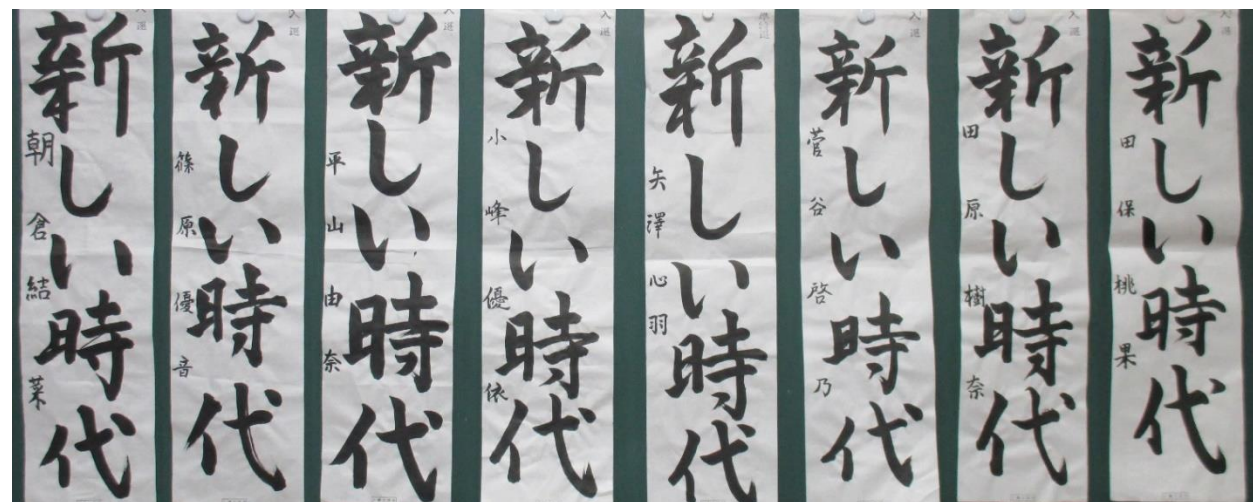 入選
新しい時代
朝倉結菜
新しい時代
篠原優音
入選
新しい時代
平山由奈
入選
新しい時代
小峰優依
入選
新しい時代
矢澤心羽
新しい時代
菅谷啓乃
入選
新しい時代
田原樹奈
入選
新しい時代
田保桃果
入選